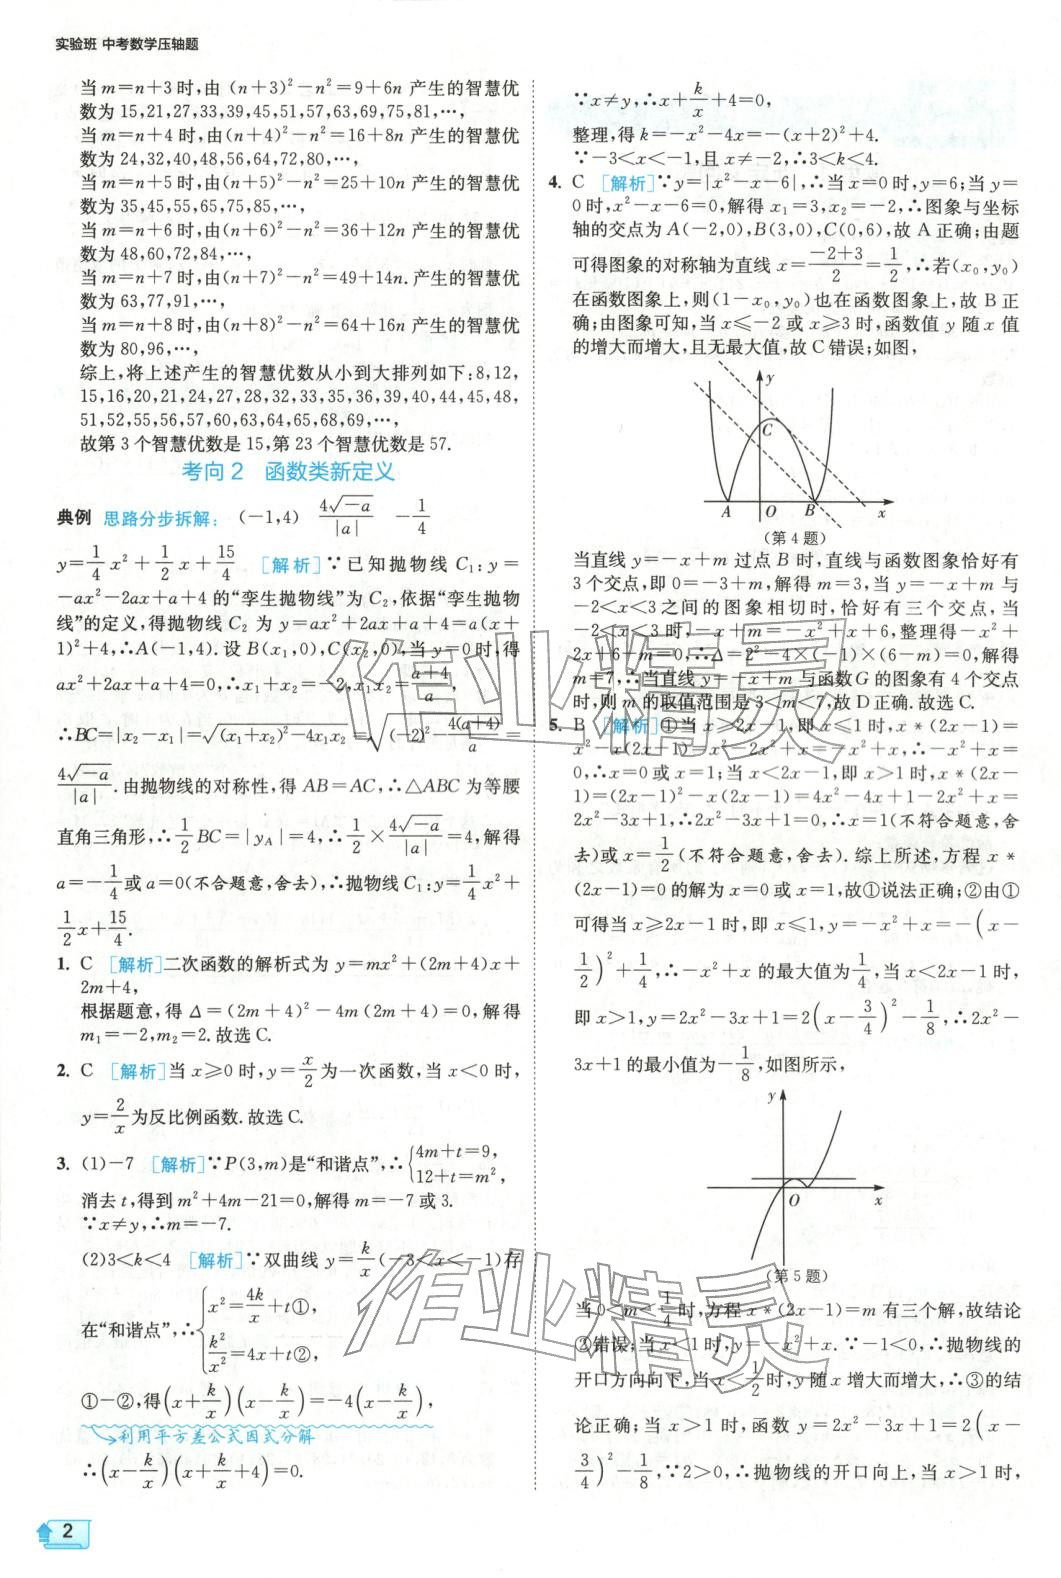 实验班 中考数学压轴题
当m=n+3时,由(n+3)²-n²=9+6n产生的智慧优
数为15,21,27,33,39,45,51,57,63,69,75,81,…,
当m=n+4时,由(n+4)²-n²=16+8n产生的智慧优
数为24,32,40,48,56,64,72,80,…,
当m=n+5时,由(n+5)²-n²=25+10n产生的智慧优
数为35,45,55,65,75,85,…,
当m=n+6时,由(n+6)²-n²=36+12n产生的智慧优
数为48,60,72,84,…,
当m=n+7时,由(n+7)²-n²=49+14n.产生的智慧优
数为63,77,91,…,
当m=n+8时,由(n+8)²-n²=64+16n产生的智慧优
数为80,96,…,
综上,将上述产生的智慧优数从小到大排列如下:8,12,
15,16,20,21,24,27,28,32,33,35,36,39,40,44,45,48,
51,52,55,56,57,60,63,64,65,68,69,…,
故第3个智慧优数是15,第23个智慧优数是57.
考向2 函数类新定义
典例 思路分步拆解: (-1,4) 4√(-a)/|a| -1/4
y=1/4x²+1/2x+15/4 [解析]∵已知抛物线C₁:y=
-ax²-2ax+a+4的“孪生抛物线”为C₂,依据“孪生抛物
线”的定义,得抛物线C₂为y=ax²+2ax+a+4=a(x+
1)²+4,∴A(-1,4).设B(x₁,0),C(x₂,0),当y=0时,得
ax²+2ax+a+4=0,∴x₁+x₂=-2,x₁x₂=(a+4)/a,
∴BC=|x₂-x₁|=√((x₁+x₂)²-4x₁x₂)=√((-2)²-4(a+4)/a)=
4√(-a)/|a|.由抛物线的对称性,得AB=AC,∴△ABC为等腰
直角三角形,∴1/2BC=|y_A|=4,∴1/2×4√(-a)/|a|=4,解得
a=-1/4或a=0(不合题意,舍去),∴抛物线C₁:y=1/4x²+
1/2x+15/4.
1. C [解析]二次函数的解析式为y=mx²+(2m+4)x+
2m+4,
根据题意,得Δ=(2m+4)²-4m(2m+4)=0,解得
m₁=-2,m₂=2.故选C.
2. C [解析]当x≥0时,y=x/2为一次函数,当x<0时,
y=2/x为反比例函数.故选C.
3. (1)-7 [解析]∵P(3,m)是“和谐点”,∴{4m+t=9, 12+t=m²,
消去t,得到m²+4m-21=0,解得m=-7或3.
∵x≠y,∴m=-7.
(2)3<k<4 [解析]∵双曲线y=k/x(-3<x<-1)存
在“和谐点”,∴{x²=4k/x+t①, k²/x²=4x+t②,
①-②,得(x+k/x)(x-k/x)=-4(x-k/x),
利用平方差公式因式分解
∴(x-k/x)(x+k/x+4)=0.
2
∵x≠y,∴x+k/x+4=0,
整理,得k=-x²-4x=-(x+2)²+4.
∵-3<x<-1,且x≠-2,∴3<k<4.
4. C [解析]∵y=|x²-x-6|,∴当x=0时,y=6;当y=
0时,x²-x-6=0,解得x₁=3,x₂=-2,∴图象与坐标
轴的交点为A(-2,0),B(3,0),C(0,6),故A正确;由题
可得图象的对称轴为直线x=(-2+3)/2=1/2,∴若(x₀,y₀)
在函数图象上,则(1-x₀,y₀)也在函数图象上,故B正
确;由图象可知,当x≤-2或x≥3时,函数值y随x值
的增大而增大,且无最大值,故C错误;如图,
y
C
A O B x
(第4题)
当直线y=-x+m过点B时,直线与函数图象恰好有
3个交点,即0=-3+m,解得m=3,当y=-x+m与
-2<x<3之间的图象相切时,恰好有三个交点,当
-2<x<3时,-x+m=-x²+x+6,整理得-x²+
2x+6-m=0,∴Δ=2²-4×(-1)×(6-m)=0,解得
m=7,∴当直线y=-x+m与函数G的图象有4个交点
时,则m的取值范围是3<m<7,故D正确.故选C.
5. B [解析]①当x≥2x-1,即x≤1时,x*(2x-1)=
x²-x(2x-1)=x²-2x²+x=-x²+x,∴-x²+x=
0,∴x=0或x=1;当x<2x-1,即x>1时,x*(2x-
1)=(2x-1)²-x(2x-1)=4x²-4x+1-2x²+x=
2x²-3x+1,∴2x²-3x+1=0,∴x=1(不符合题意,舍
去)或x=1/2(不符合题意,舍去).综上所述,方程x*
(2x-1)=0的解为x=0或x=1,故①说法正确;②由①
可得当x≥2x-1时,即x≤1,y=-x²+x=-(x-
1/2)²+1/4,∴-x²+x的最大值为1/4,当x<2x-1时,
即x>1,y=2x²-3x+1=2(x-3/4)²-1/8,∴2x²-
3x+1的最小值为-1/8,如图所示,
y
O x
(第5题)
当0<m<1/4时,方程x*(2x-1)=m有三个解,故结论
②错误;当x<1时,y=-x²+x.∵-1<0,∴抛物线的
开口方向向下,当x<1/2时,y随x增大而增大,∴③的结
论正确;当x>1时,函数y=2x²-3x+1=2(x-
3/4)²-1/8,∵2>0,∴抛物线的开口向上,当x>1时,
作业精灵
作业精灵